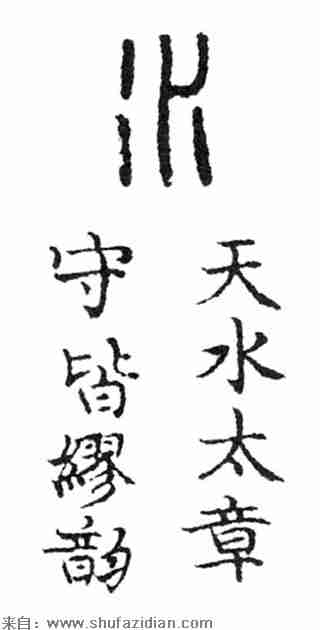 水
天水太章
守皆繆韵
来自：www.shufazidian.com